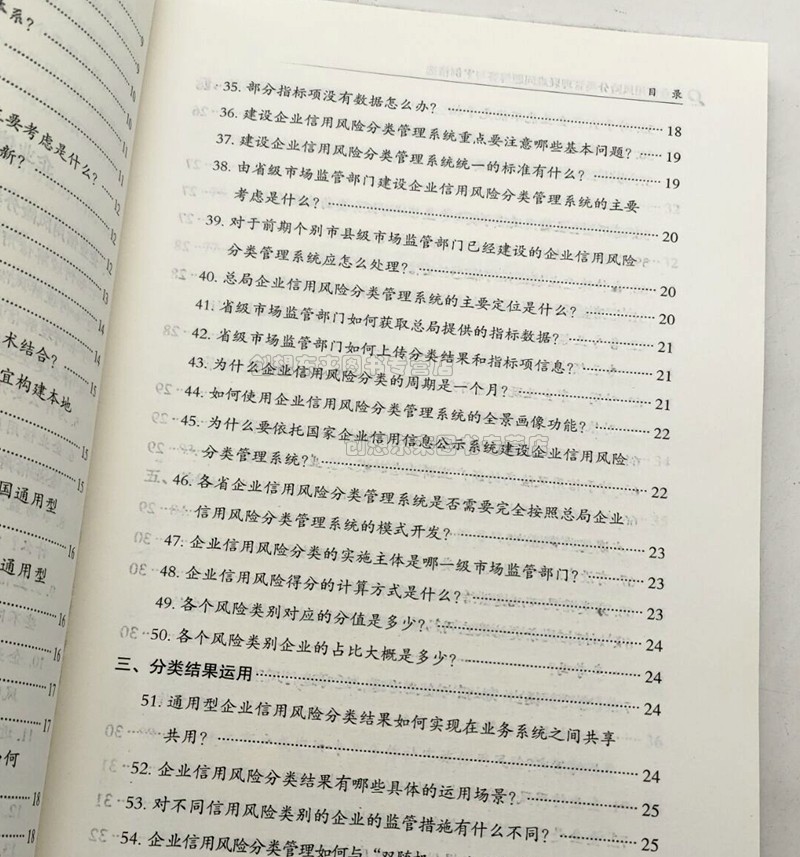 目 录
35. 部分指标项没有数据怎么办? 18
36. 建设企业信用风险分类管理系统重点要注意哪些基本问题? 19
37. 建设企业信用风险分类管理系统统一的标准有什么? 19
38. 由省级市场监管部门建设企业信用风险分类管理系统的主要
考虑是什么? 20
39. 对于前期个别市县级市场监管部门已经建设的企业信用风险
分类管理系统应怎么处理? 20
40. 总局企业信用风险分类管理系统的主要定位是什么? 20
41. 省级市场监管部门如何获取总局提供的指标数据? 21
42. 省级市场监管部门如何上传分类结果和指标项信息? 21
43. 为什么企业信用风险分类的周期是一个月? 21
44. 如何使用企业信用风险分类管理系统的全景画像功能? 22
45. 为什么要依托国家企业信用信息公示系统建设企业信用风险
分类管理系统? 22
46. 各省企业信用风险分类管理系统是否需要完全按照总局企业
信用风险分类管理系统的模式开发? 23
47. 企业信用风险分类的实施主体是哪一级市场监管部门? 23
48. 企业信用风险得分的计算方式是什么? 23
49. 各个风险类别对应的分值是多少? 24
50. 各个风险类别企业的占比大概是多少? 24
三、分类结果运用 24
51. 通用型企业信用风险分类结果如何实现在业务系统之间共享
共用? 24
52. 企业信用风险分类结果有哪些具体的运用场景? 25
53. 对不同信用风险类别的企业的监管措施有什么不同? 25
54. 企业信用风险分类管理如何与“双随机
体系?
9
9
10
11
要考虑是什么? 11
新? 12
12
12
13
14
14
术结合? 15
宜构建本地
15
15
国通用型
16
通用型
16
16
17
17
何
18
18